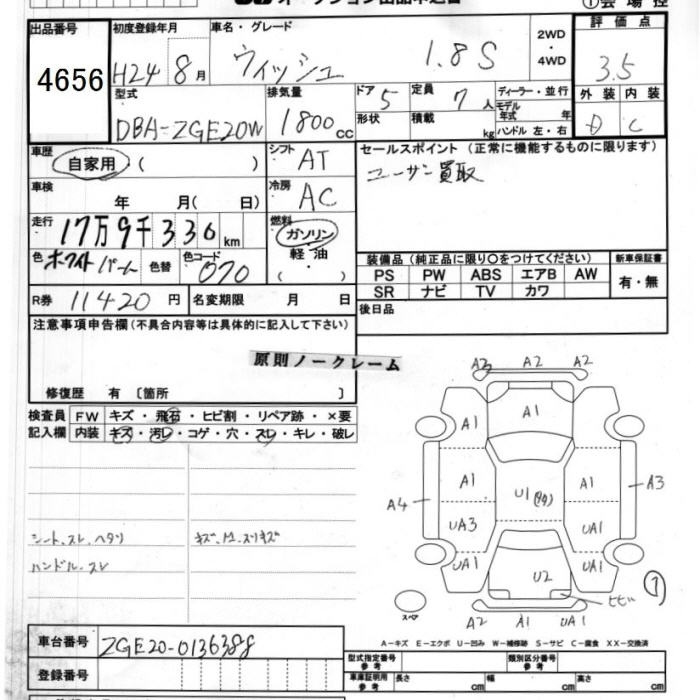 出品番号 初度登録年月 車名・グレード 2WD・4WD 評価点
4656 H24 8月 ウィッシュ 1.8S 3.5
型式 排気量 ドア 5 定員 7人 ディーラー・並行 外装 内装
DBA-ZGE20W 1800cc 形状 積載 kg モデル年式 年 ハンドル 左・右 D C
車歴 自家用 ( ) シフト AT セールスポイント (正常に機能するものに限ります)
車検 年 月( 日) 冷房 AC ユーザー買取
走行 17万9千330km 燃料 ガソリン 軽油 ( )
色 ホワイトパール 色替 色コード 070
装備品 (純正品に限り○をつけてください) 新車保証書
PS PW ABS エアB AW 有・無
SR ナビ TV カワ
R券 11420円 名変期限 月 日 後日品
注意事項申告欄(不具合内容等は具体的に記入して下さい)
原則ノークレーム
修復歴 有 〔箇所 〕
検査員 FW キズ・飛石・ヒビ割・リペア跡・×要
記入欄 内装 キズ・汚レ・コゲ・穴・スレ・キレ・破レ
シート、スレ、ヘタリ
ハンドル、スレ
A3 A2 A2
A1
A1 A1
A1 U1 A1
A4 A3
UA3 UA1
UA1 UA1
U2
ヒビ
スペア A2 A1 UA1
A-キズ E-エクボ U-凹み W-補修跡 S-サビ C-腐食 XX-交換済
車台番号 ZGE20-0136388
登録番号
型式指定番号 参考 類別区分番号 参考
車庫証明用 参考 長さ cm 幅 cm 高さ cm